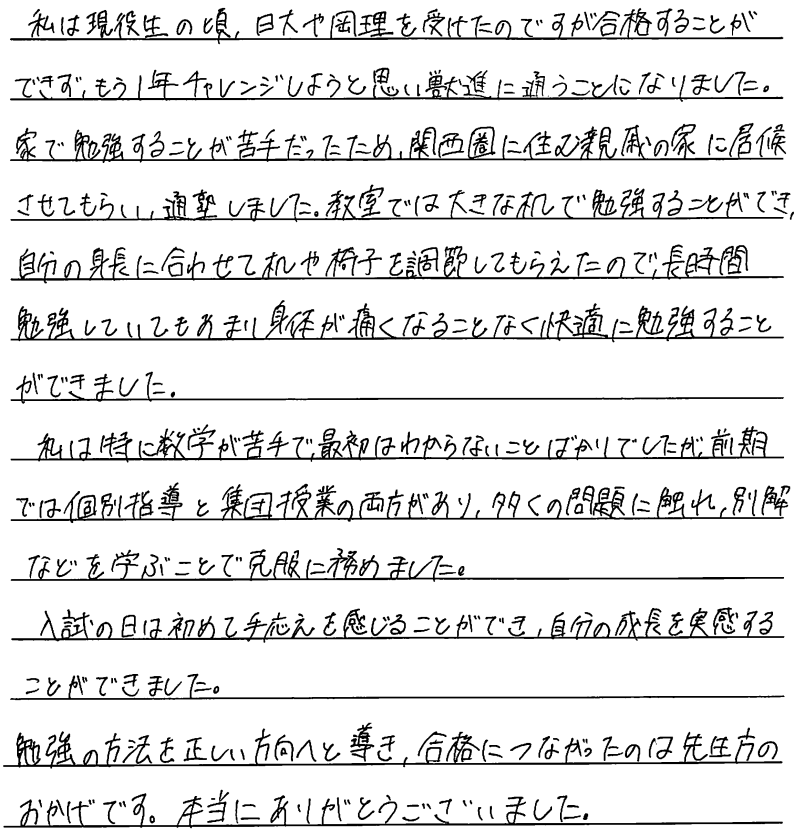 私は現役生の頃、日大や岡理を受けたのですが合格することが
できず、もう1年チャレンジしようと思い獣進に通うことになりました。
家で勉強することが苦手だったため、関西圏に住む親戚の家に居候
させてもらい、通塾しました。教室では大きな机で勉強することができ、
自分の身長に合わせて机や椅子を調節してもらえたので、長時間
勉強していてもあまり身体が痛くなることなく快適に勉強すること
ができました。
私は特に数学が苦手で、最初はわからないことばかりでしたが、前期
では個別指導と集団授業の両方があり、多くの問題に触れ、別解
などを学ぶことで克服に務めました。
入試の日は初めて手応えを感じることができ、自分の成長を実感する
ことができました。
勉強の方法を正しい方向へと導き、合格につながったのは先生方の
おかげです。本当にありがとうございました。